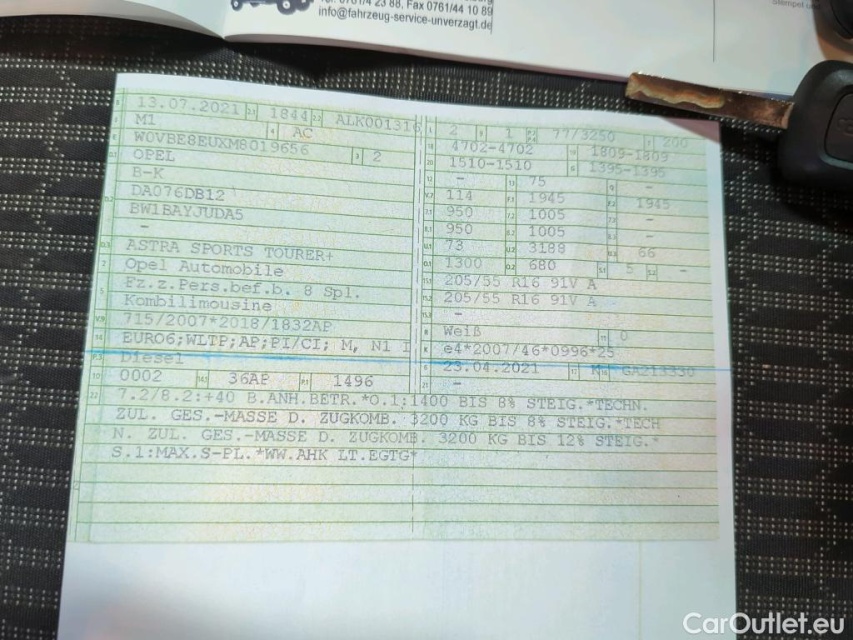 Tel. 0761/4 23 88, Fax 0761/44 10 89
info@fahrzeug-service-unverzagt.de
13.07.2021 1844 ALK001316
M1 AC
W0VBE8EUXM8019656
OPEL 2
B-K
DA076DB12
BW1BAYJUDA5
-
ASTRA SPORTS TOURER+
Opel Automobile
Fz.z.Pers.bef.b. 8 Spl.
Kombilimousine
715/2007*2018/1832AP
EURO6;WLTP;AP;PI/CI; M, N1 I
Diesel
0002 36AP 1496
2 1 77/3250
200
4702-4702 1809-1809
1510-1510 1395-1395
- 75 -
114 1945 1945
950 1005 -
950 1005 -
73 3188 66
1300 680 5 -
205/55 R16 91V A
205/55 R16 91V A
-
Weiß 0
e4*2007/46*0996*25
23.04.2021 GA213330
-
7.2/8.2:+40 B.ANH.BETR.*O.1:1400 BIS 8% STEIG.*TECHN.
ZUL. GES.-MASSE D. ZUGKOMB. 3200 KG BIS 8% STEIG.*TECH
N. ZUL. GES.-MASSE D. ZUGKOMB. 3200 KG BIS 12% STEIG.*
S.1:MAX.S-PL.*WW.AHK LT.EGTG*
CarOutlet.eu